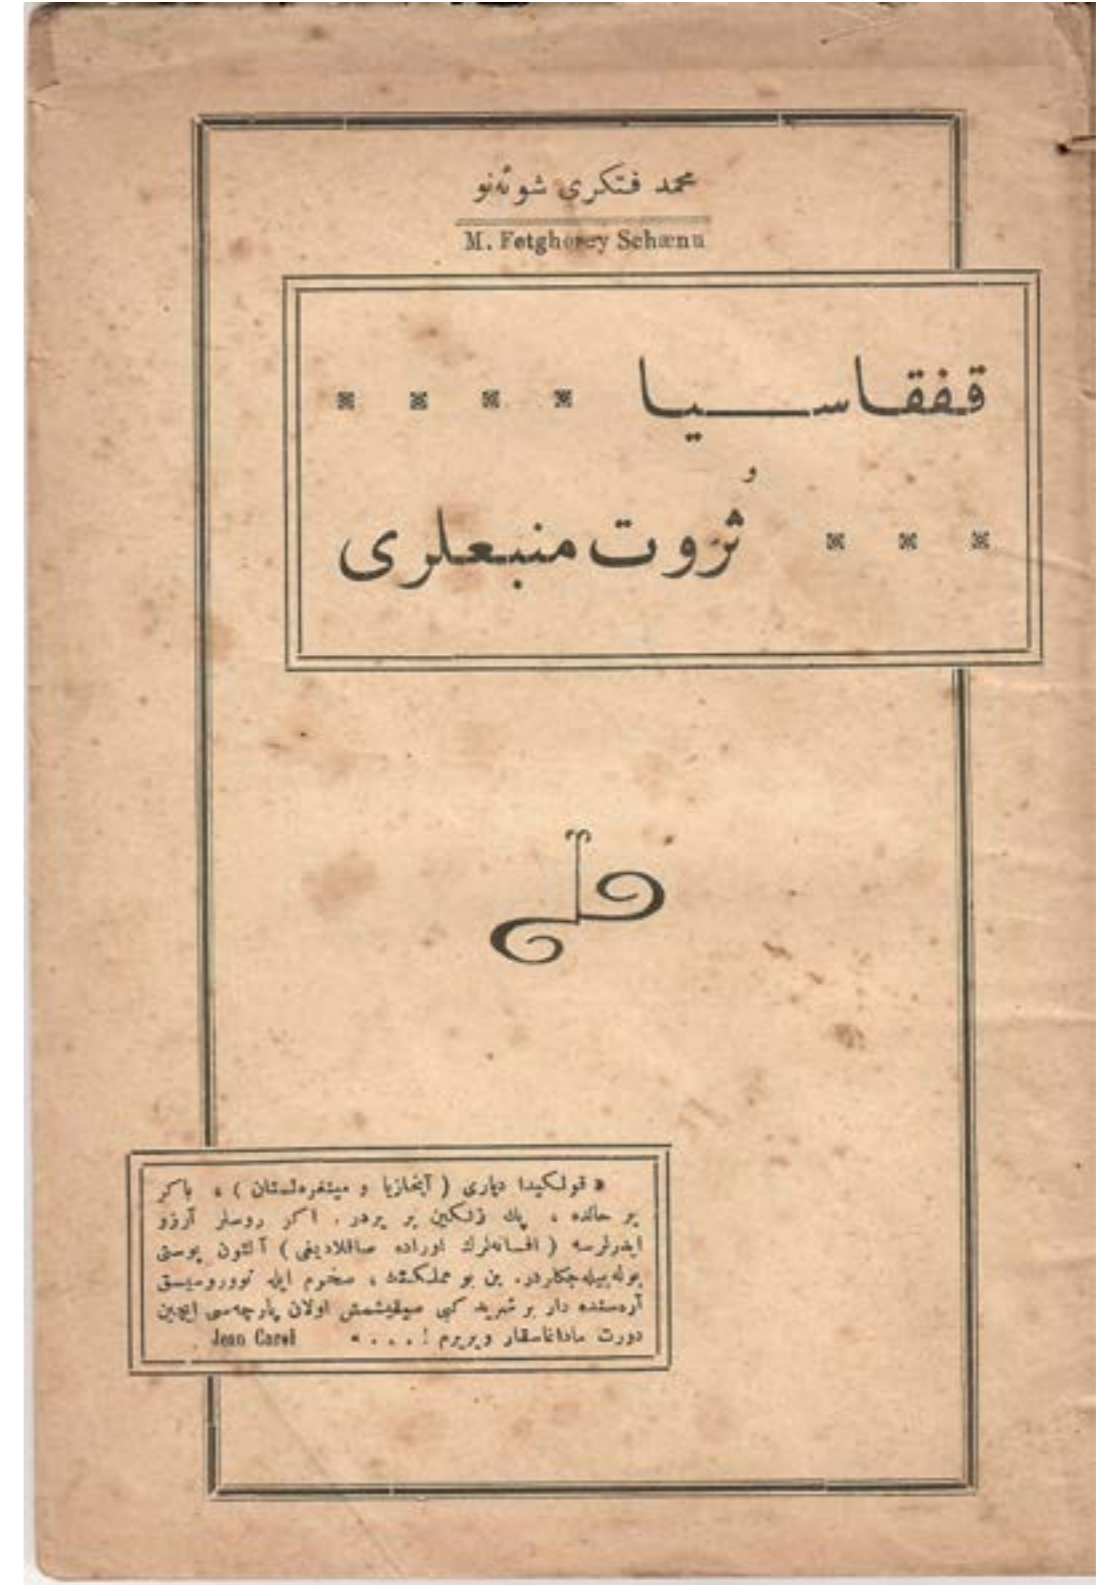 محمد فتكری شوئه‌نو
M. Fetgherey Schœnu
قفقاسیا
ثُروت منبعلری
« قولكیدا دیاری ( آبخازیا و مینغره‌لستان ) ، باكر
بر حالده ، پك زنكین بر یردر . اكر روسلر آرزو
ایدرلرسه ( افسانه‌لرك اوراده صاقلادیغی ) آلتون پوستی
بوله‌بیله‌جكلردر. بن بو مملكتك ، صخوم ایله نووروسیسق
آره‌سنده دار بر شرید كبی صیقیشمش اولان پارچه‌سی ایچین
دورت ماداغاسقار ویریرم ! . . . » Jean Carol